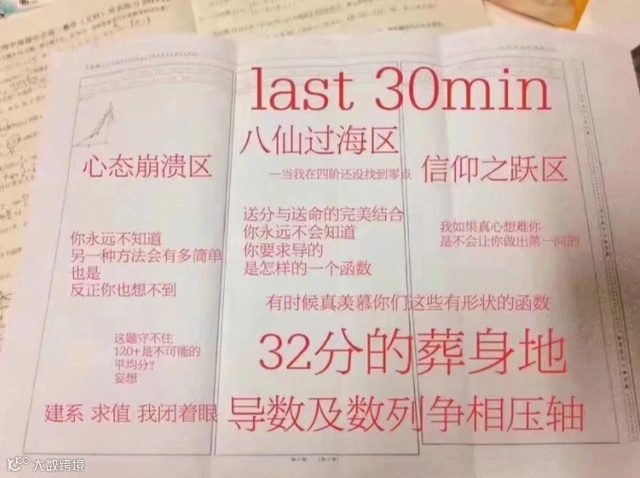 last 30min
八仙过海区
心态崩溃区
—当我在四阶还没找到零点
信仰之跃区
送分与送命的完美结合
你永远不会知道
你要求导的
是怎样的一个函数
你永远不知道
另一种方法会有多简单
也是
反正你也想不到
我如果真心想难你
是不会让你做出第一问的
有时候真羡慕你们这些有形状的函数
这题守不住
120+是不可能的
平均分?
妄想
32分的葬身地
建系 求值 我闭着眼
导数及数列争相压轴
大数跨境